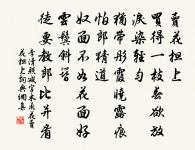 賣花担上
買得一枝春欲放
淚染輕勻
猶帶彤霞曉露痕
怕郎猜道
奴面不如花面好
雲鬢斜簪
徒要教郎比并看
李清照減字木蘭花賣
花担上詞典網集